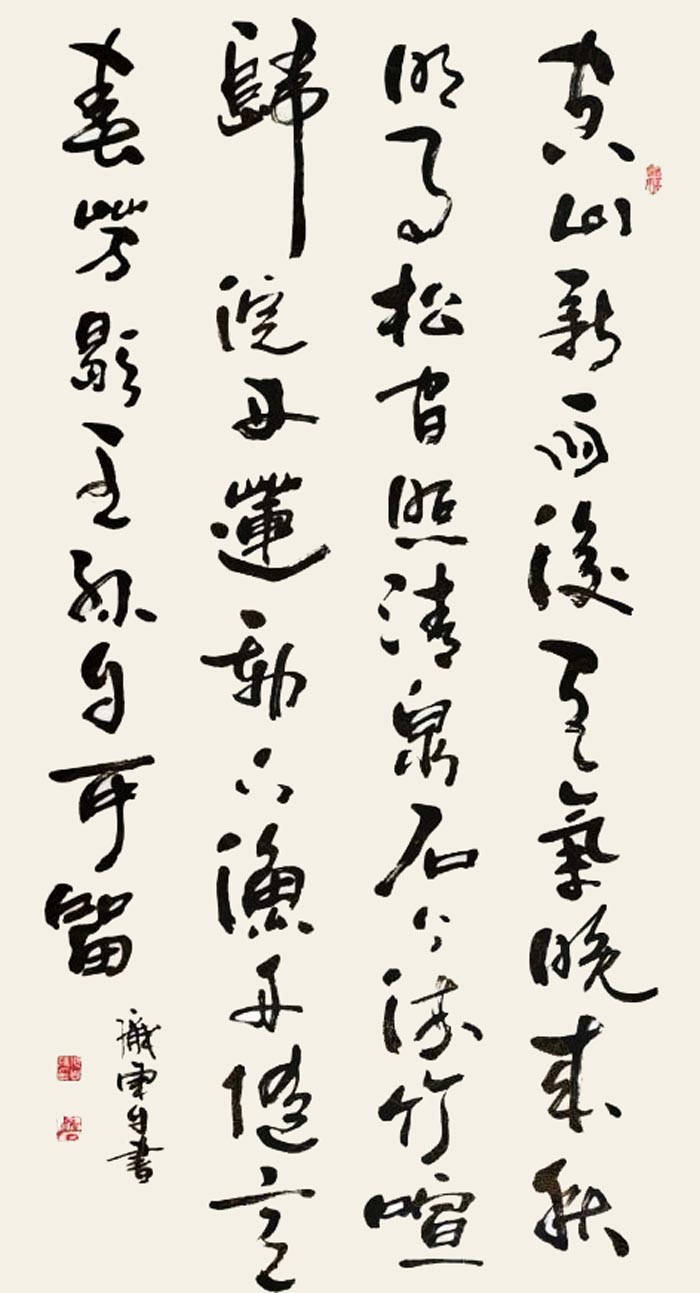 空山新雨後天氣晚來秋
明月松間照清泉石上流竹喧
歸浣女蓮動下漁舟隨意
春芳歇王孫自可留
書